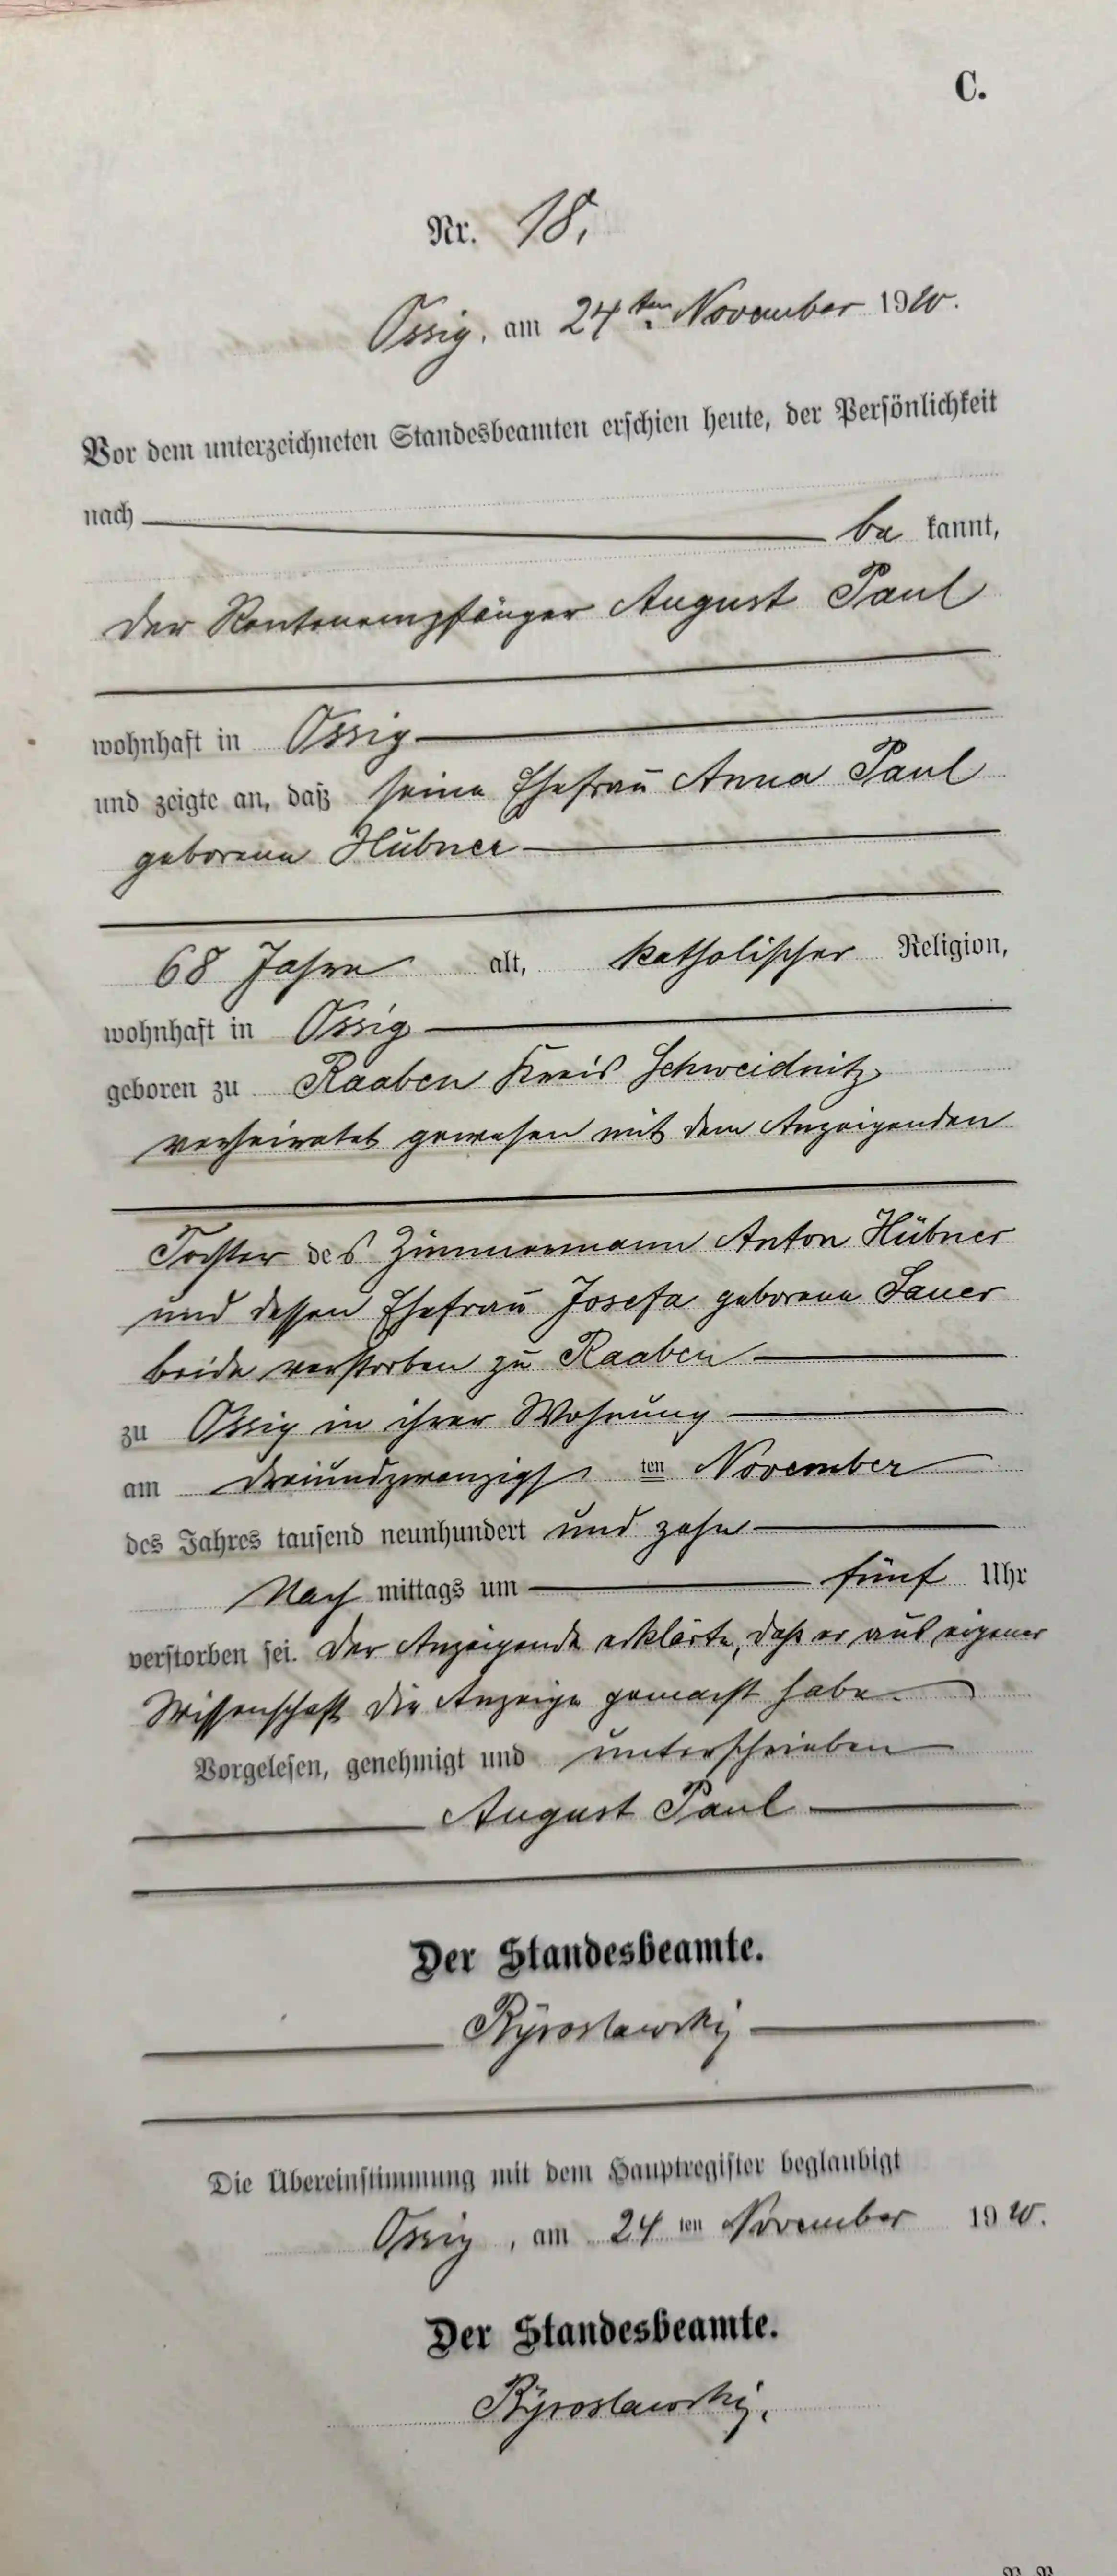 C.
Nr. 18.
Ossig, am 24ten November 1910.
Vor dem unterzeichneten Standesbeamten erschien heute, der Persönlichkeit
nach be kannt,
der Rentenempfänger August Paul
wohnhaft in Ossig
und zeigte an, daß seine Ehefrau Anna Paul
geborene Hübner
68 Jahre alt, katholischer Religion,
wohnhaft in Ossig
geboren zu Raaben Kreis Schweidnitz,
verheiratet gewesen mit dem Anzeigenden
Tochter des Zimmermann Anton Hübner
und dessen Ehefrau Josefa geborene Sauer
beide verstorben zu Raaben
zu Ossig in ihrer Wohnung
am dreiundzwanzigsten November
des Jahres tausend neunhundert und zehn
Nach mittags um fünf Uhr
verstorben sei. Der Anzeigende erklärte, daß er aus eigener
Wissenschaft die Anzeige gemacht habe.
Vorgelesen, genehmigt und unterschrieben
August Paul
Der Standesbeamte.
Die Übereinstimmung mit dem Hauptregister beglaubigt
Ossig, am 24 ten November 1910.
Der Standesbeamte.